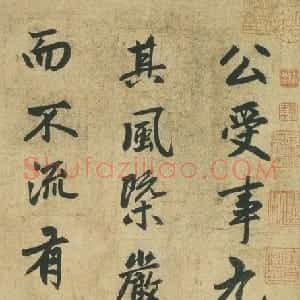 公受事尤
其風槩嚴
而不流有
Shufaziliao.com